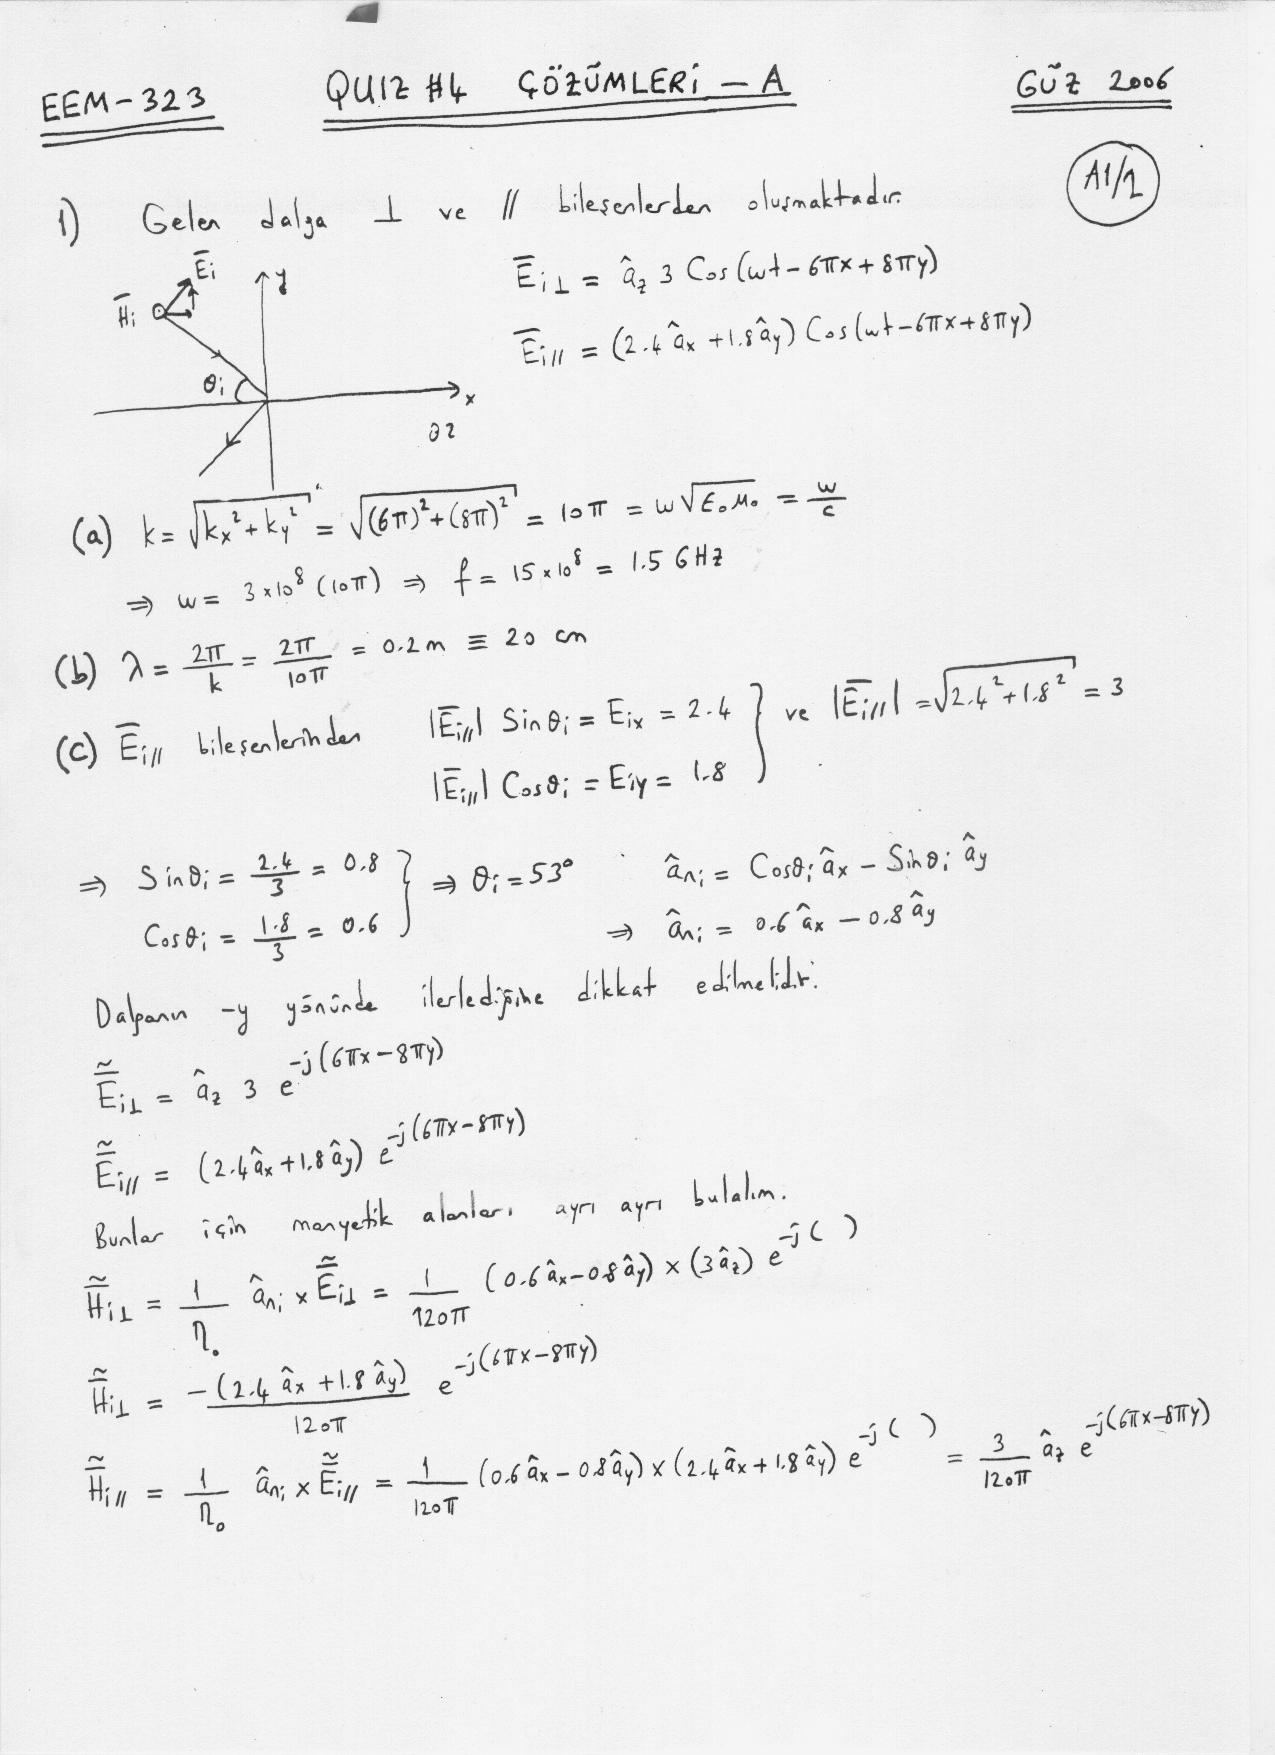 EEM-323 QUIZ #4 ÇÖZÜMLERİ - A GÜZ 2006
A1/2
1) Gelen dalga ⊥ ve // bileşenlerden oluşmaktadır.
E̅i⊥ = âz 3 Cos(wt - 6πx + 8πy)
E̅i// = (2.4 âx + 1.8 ây) Cos(wt - 6πx + 8πy)
E̅i
H̅i
y
θi
x
z
(a) k = √(kx² + ky²) = √((6π)² + (8π)²) = 10π = w√(ε₀μ₀) = w/c
⇒ w = 3×10⁸ (10π) ⇒ f = 15×10⁸ = 1.5 GHz
(b) λ = 2π/k = 2π/10π = 0.2 m ≡ 20 cm
(c) E̅i// bileşenlerinden |E̅i//| Sinθi = Eix = 2.4 } ve |E̅i//| = √(2.4² + 1.8²) = 3
|E̅i//| Cosθi = Eiy = 1.8
⇒ Sinθi = 2.4/3 = 0.8 } ⇒ θi = 53° âni = Cosθi âx - Sinθi ây
Cosθi = 1.8/3 = 0.6 ⇒ âni = 0.6 âx - 0.8 ây
Dalganın -y yönünde ilerlediğine dikkat edilmelidir.
Ẽ̅i⊥ = âz 3 e^-j(6πx - 8πy)
Ẽ̅i// = (2.4 âx + 1.8 ây) e^-j(6πx - 8πy)
Bunlar için manyetik alanları ayrı ayrı bulalım.
H̃̅i⊥ = 1/η₀ âni × Ẽ̅i⊥ = 1/120π (0.6 âx - 0.8 ây) × (3 âz) e^-j( )
H̃̅i⊥ = -(2.4 âx + 1.8 ây)/120π e^-j(6πx - 8πy)
H̃̅i// = 1/η₀ âni × Ẽ̅i// = 1/120π (0.6 âx - 0.8 ây) × (2.4 âx + 1.8 ây) e^-j( ) = 3/120π âz e^-j(6πx - 8πy)